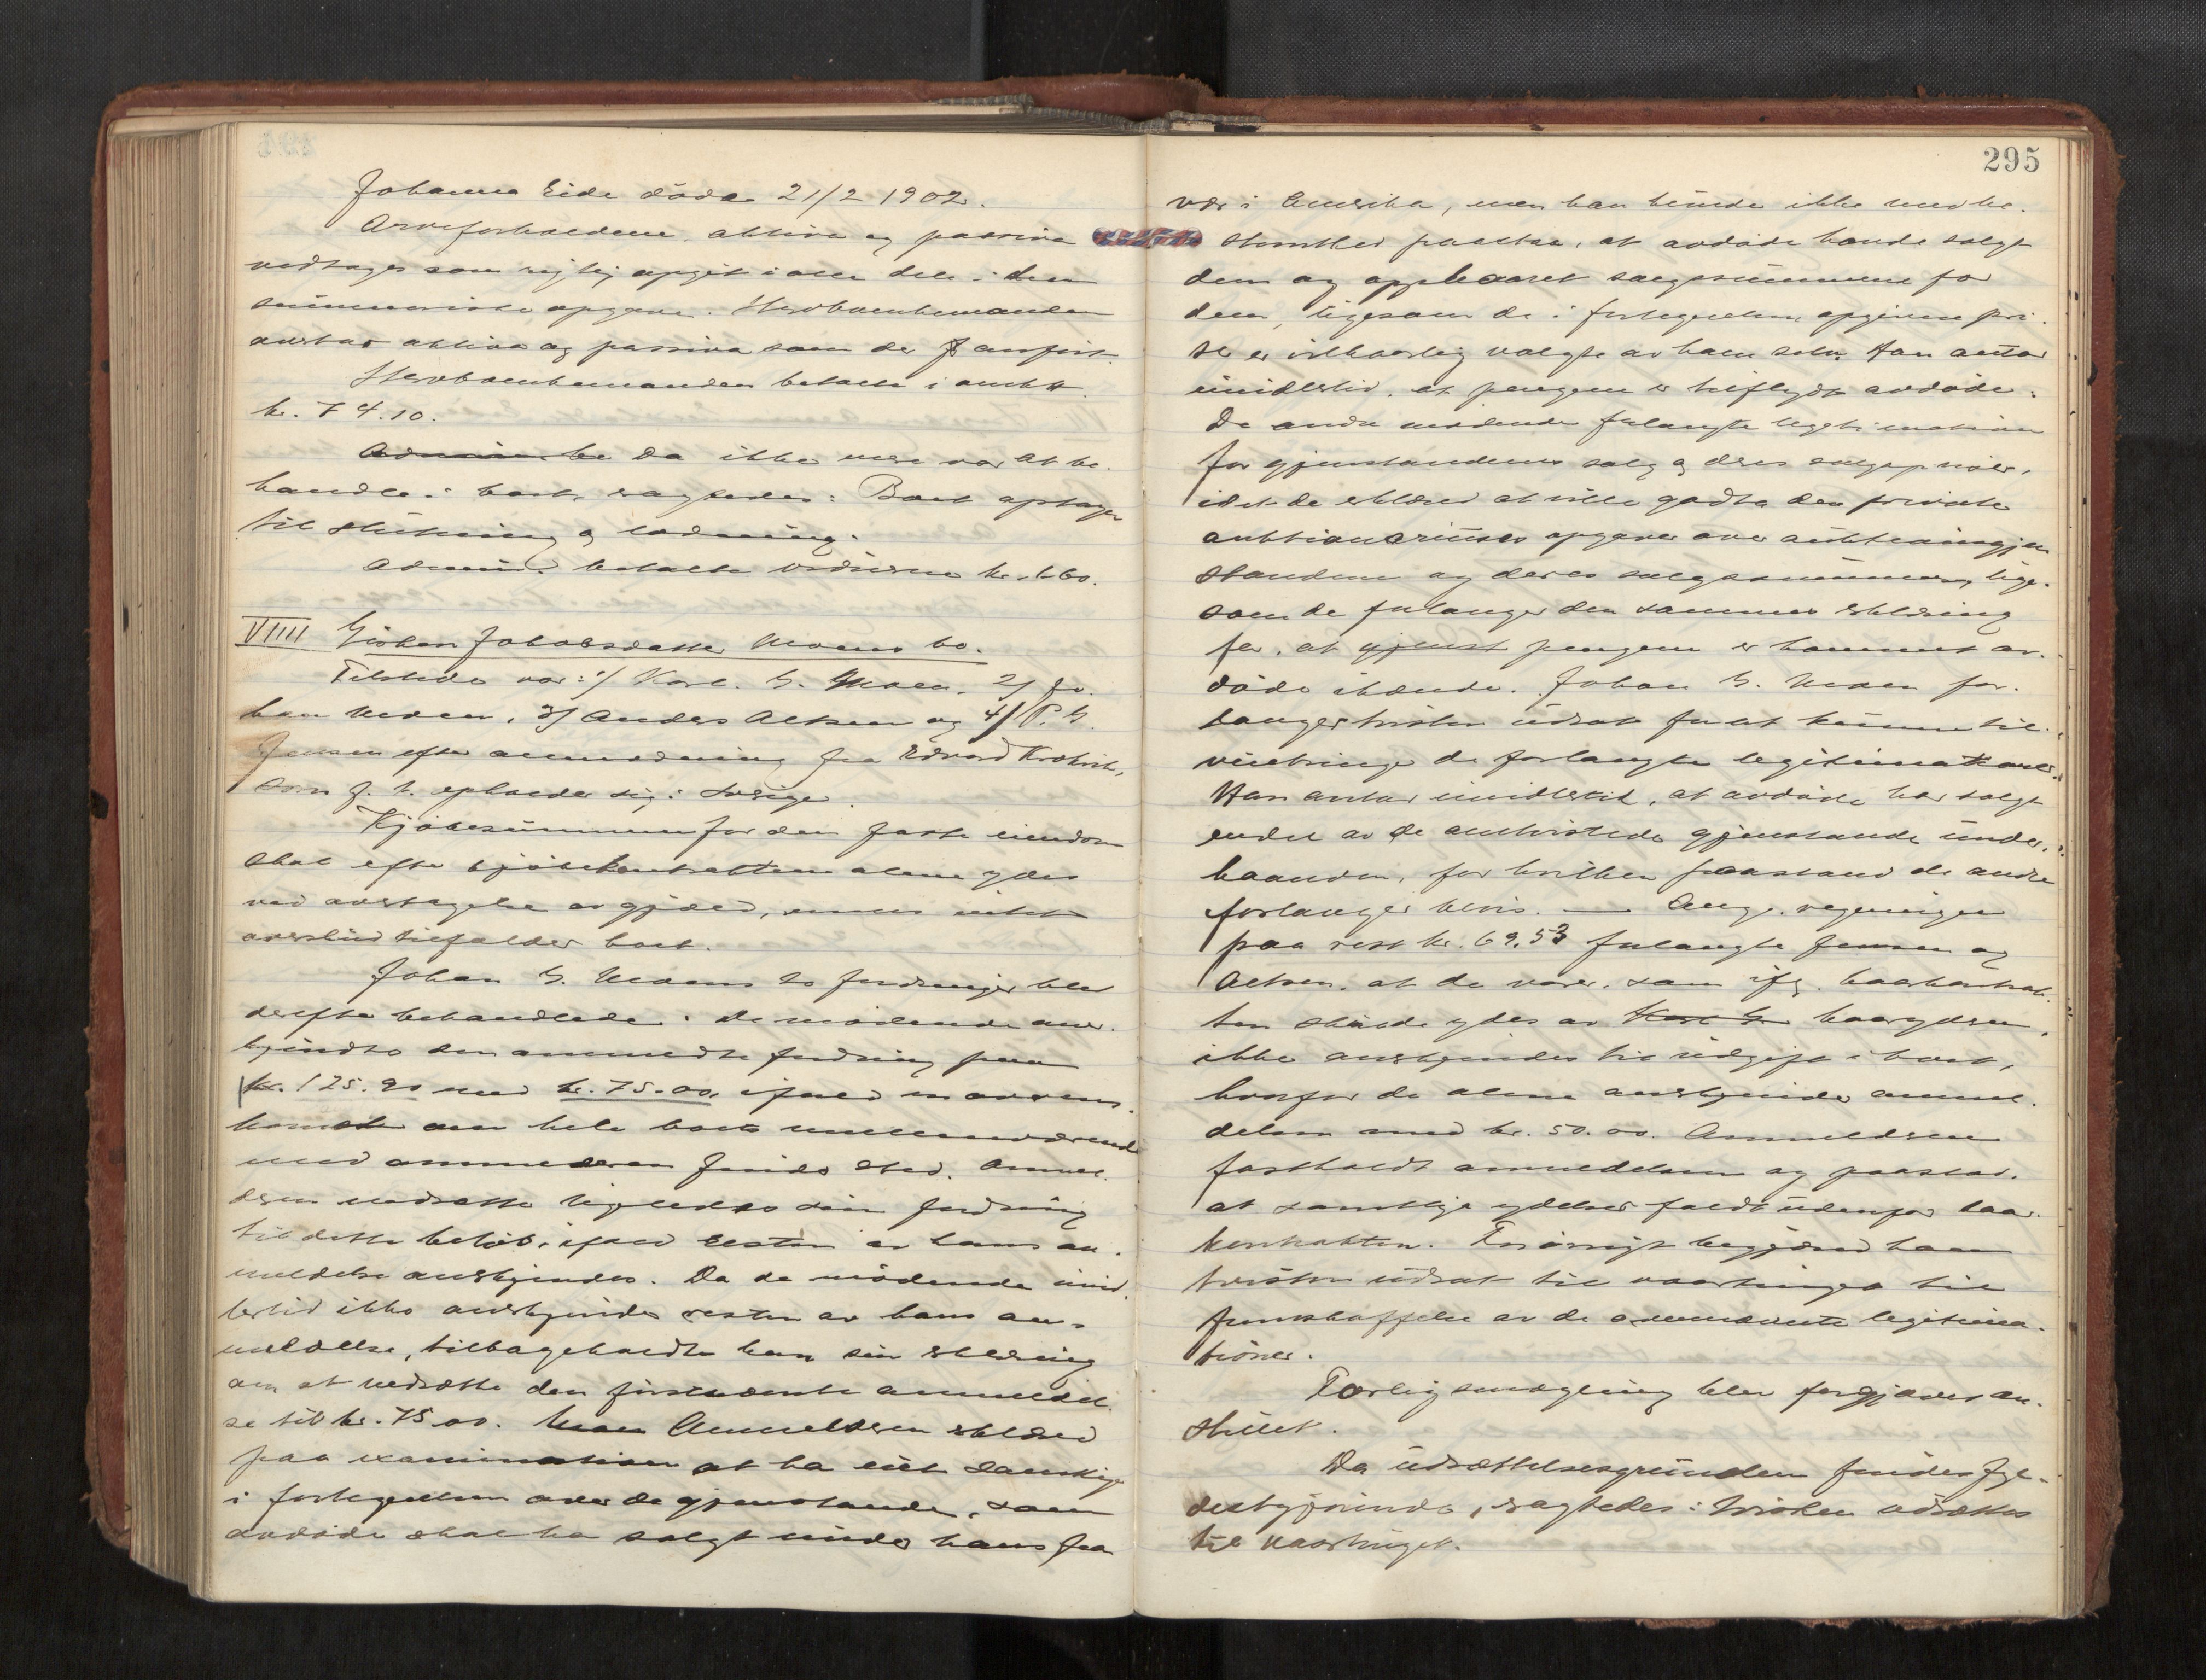 Johanna Eide döde 21/2 1902.
Arveforholdene, aktiva og passiva
vedtages som rigtig opgit i alle dele i den
summariske opgave. Stervboenkemanden
overtar aktiva og passiva som der anfört.
Stervboenkemanden betalte i
kr. 74.10.
da ikke mere var at be-
handle i boet, vagtedes: Boet optages
til slutning og lodning.
Admin. betalte vidnerne kr. 1.60.
VIIII Jakobsdatter Moens bo.
Tilstede var: 1/ Karl G. Moen, 2/ Jo-
han Moen, 3/ Anders Aksen og 4/ P. G.
Jensen efter anmodning fra Edvard
som f. t. opholder sig i Sverige.
Kjöbesummen for den faste eiendom
skal efter kjöbekontrakten alene ydes
ved avstagelse av gjæld, mens intet
overskud tilfalder boet.
Johan G. Moens to fordringer blev
derefter behandlede: De mödende aner-
kjendte den anmeldte fordring paa
kr. 125.90 med kr. 75.00, ifald en overens-
komst om hele boets mellemværende
med anmelderen finder sted. Anmel-
deren nedsatte ligeledes sin fordring
til dette belöb, ifald resten av hans an-
meldelse anerkjendes. Da de mödende imid-
lertid ikke anerkjender resten av hans an-
meldelse, tilbageholdte han sin erklæring
om at nedsætte den förstnævnte anmeldel-
se til kr. 75.00. Anmelderen erklæred
paa examination at ha
i fortegnelsen over de gjenstande, som
avdöde skal ha solgt under hans fra
295
vær i Amerika, men han kunde ikke med be-
stemthed paastaa, at avdöde havde solgt
dem og oppebaaret salgssummene for
dem, ligesom de i fortegnelsen opgivne pri-
ser er vilkaarlig valgte av ham selv. Han antar
imidlertid, at pengene er tilflydt avdöde.
De andre mödende forlangte legitimation
for gjenstandenes salg og deres salgspriser,
idet de erklæred at ville godta den private
auktionarius's opgaver over auktionsgjen-
standene og deres salgssummer, lige-
som de forlanger den sammes erklæring
for, at pengene er kommet av-
döde ihænde. Johan G. Moen for-
langer tvisten udsat for at kunne til-
veiebringe de forlangte legitimationer.
Han antar imidlertid, at avdöde har solgt
endel av de omtvistede gjenstande under-
haanden, for hvilken paastand de andre
forlanger bevis. — Ang. regningen
paa rest kr. 69.53 forlangte Jensen og
Aksen, at de varer, som ifg. kaarkontrak-
ten skulde ydes av kaaryderen,
ikke anerkjendes til udgift i boet,
hvorfor de alene anerkjender anmel-
delsen med kr. 50.00. Anmelderen
fastholdt anmeldelsen og paastod,
at samtlige ydelser faldt udenfor kaar-
kontrakten. Forövrigt begjæred han
tvisten udsat til vaartinget til
fremskaffelse av de ovennævnte legitima-
tioner.
Forligsmægling blev forgjæves an-
stillet.
Da udsættelsesgrunden findes fyl-
destgjörende, vagtedes: Tvisten udsættes
til vaartinget.